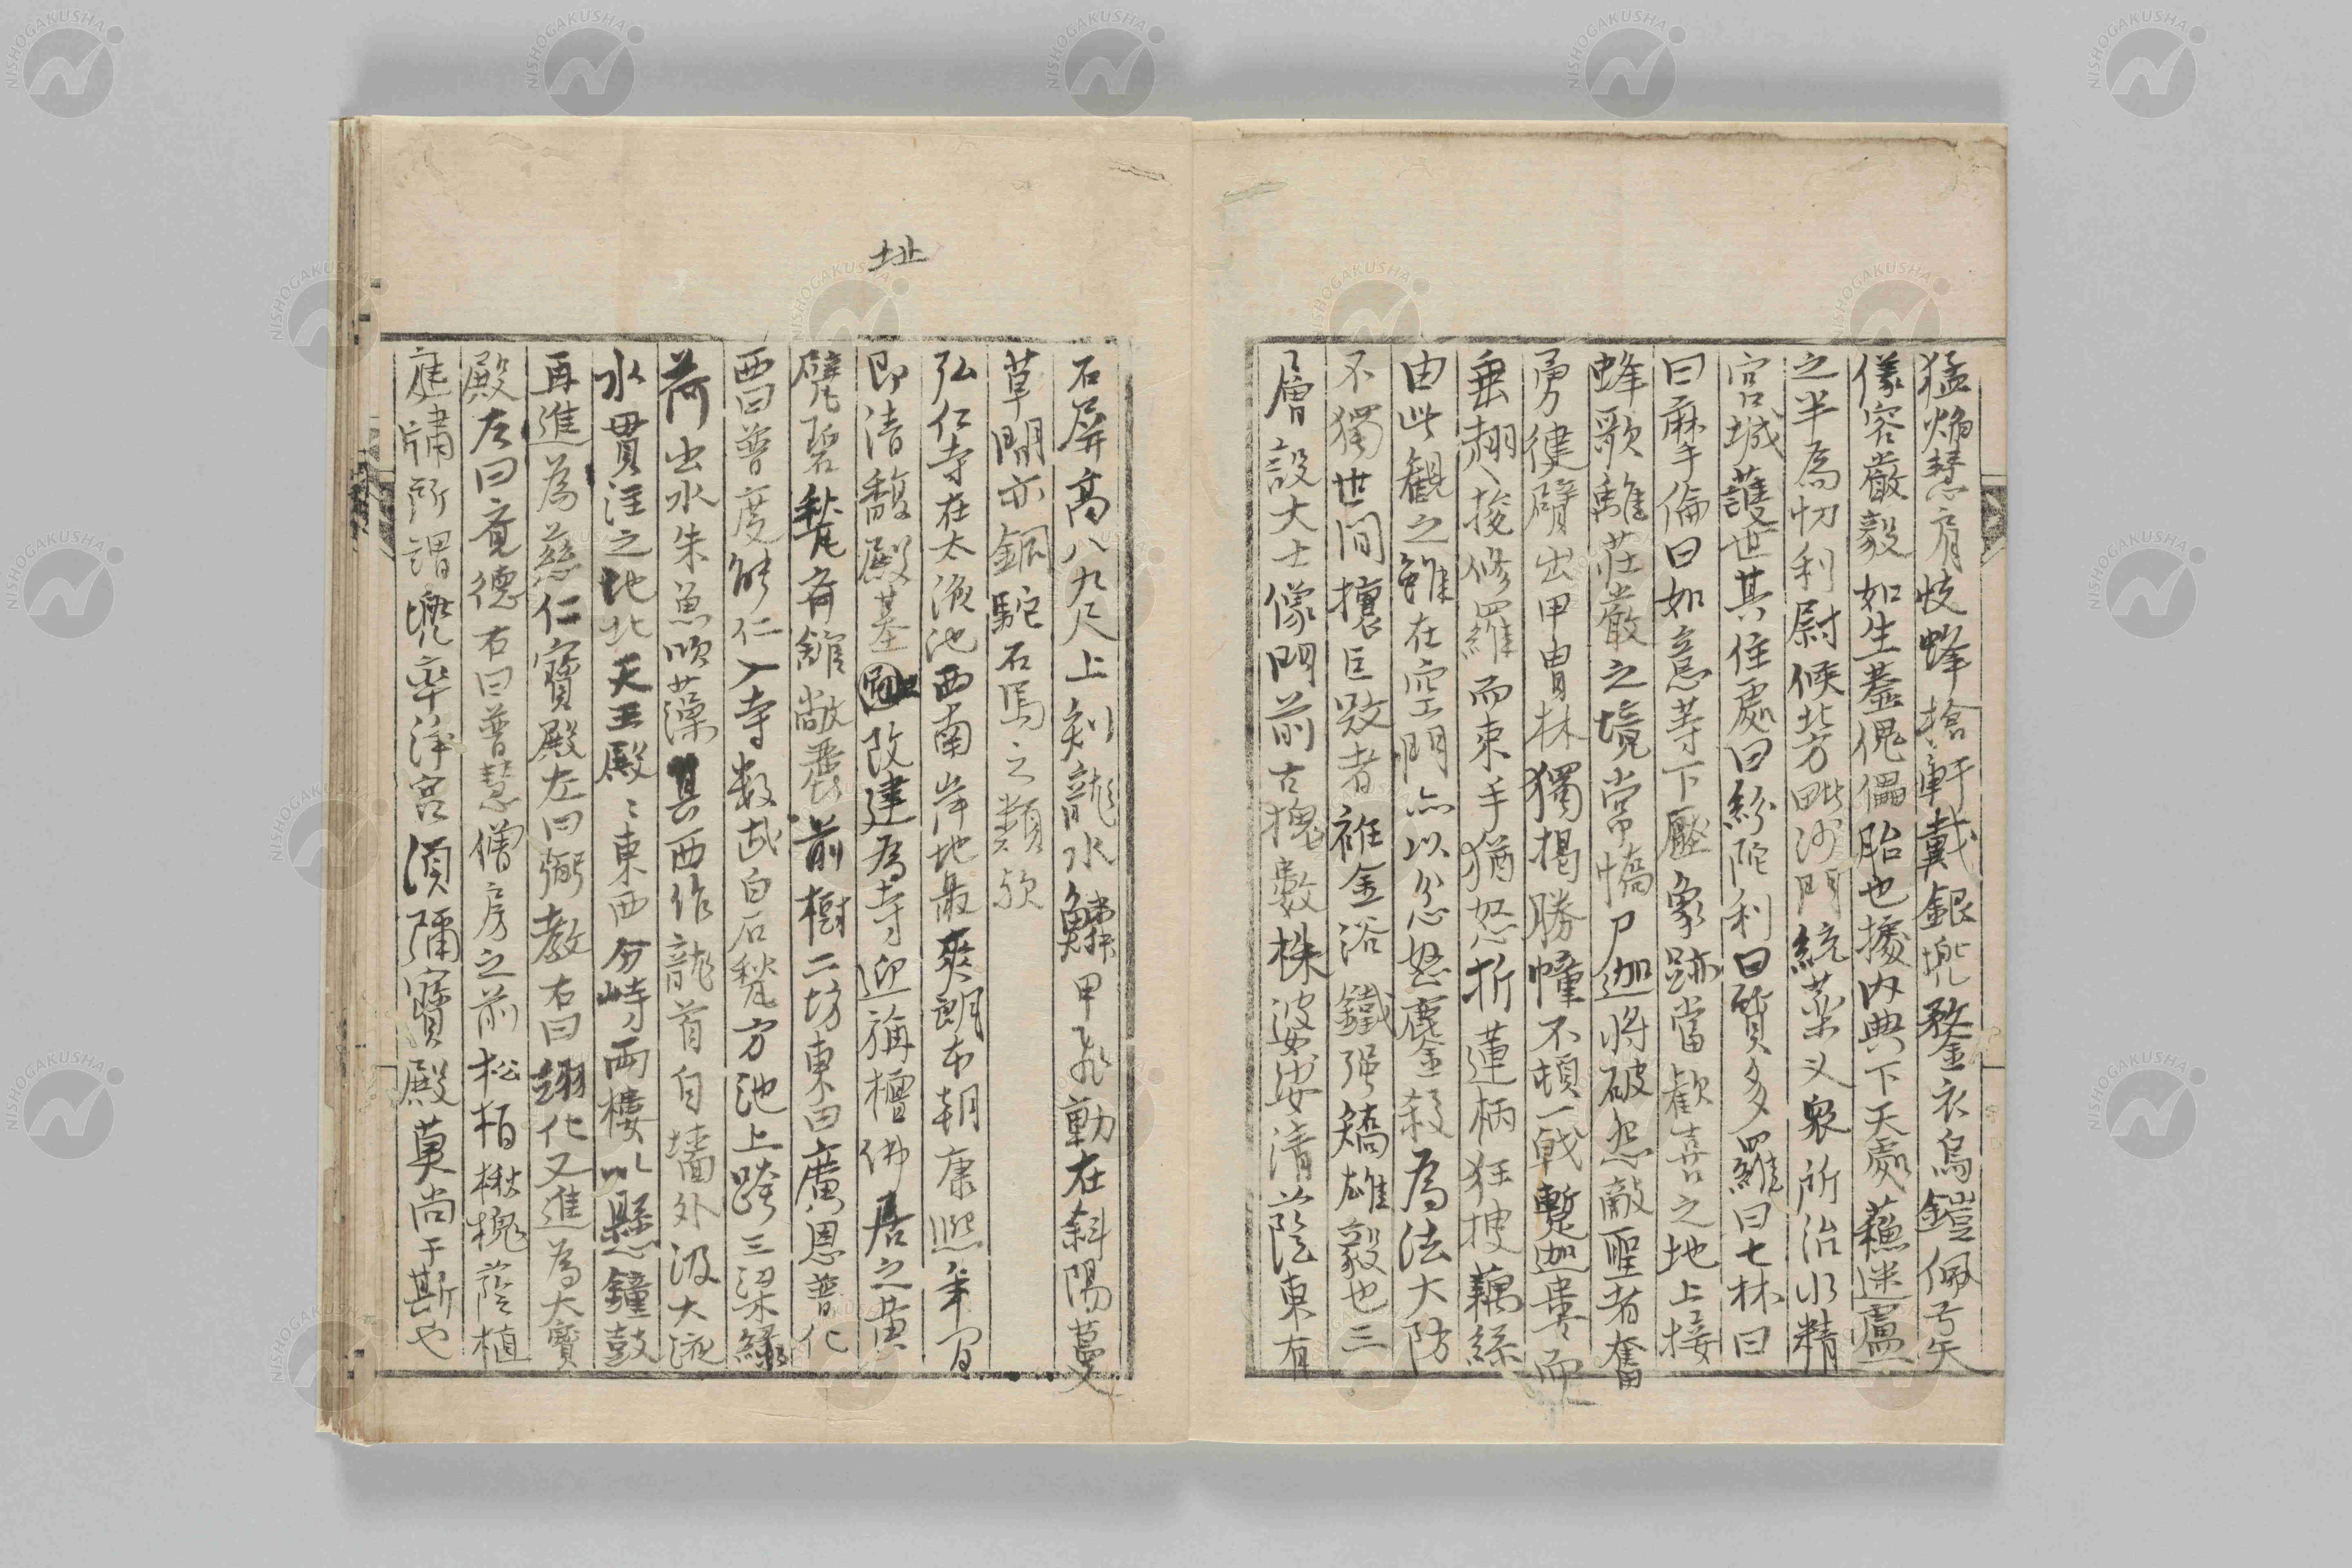 猛焔慧肩忮蜂搶軒戴銀兠鍪衣烏鎧佩弓矢
儀容嚴毅如生蓋傀儡胎也據内典下天處蘓迷盧
之半為忉利尉候北方毗沙門統葯义衆所治水精
宮城護世其住處曰紛陀利曰質多羅曰七林曰
曰麻㝈倫曰如意等下壓象跡當歡喜之地上接
蜂歌離莊嚴之境常憍尸迦將破怨敵聖者奮
勇健臂出甲冑林獨掲勝幢不頓一戟暫迦婁而
垂翅八捘修羅而束手猶怒折蓮柄狂搜藕絲
由此觀之雖在空門亦以忿怒鏖殺為法大防
不獨世間攘巨敵者袵金浴鐵强矯雄毅也三
層設大士像門前古槐數株婆娑清蔭東有
石屏高八九尺上刻龍水鱗甲飛動在斜陽蔓
草間亦銅駝石馬之類欤
址
弘仁寺在太液池西南岸地最爽朗本朝康熙年間
即清馥殿基改建為寺迎旃檀佛居之黄
甓碧甃斎雒敞麗前樹二坊東曰廣恩普化
西曰普度能仁入寺数武白石甃方池上跨三梁緑
荷出水朱魚吹藻其西作龍首自墻外汲大液
水貫注之池北天王殿〻東西分峙兩樓以懸鐘鼓
再進為慈仁寶殿左曰弼教右曰翊化又進為大寶
殿左曰竟德右曰普慧僧房之前松栢楸槐蔭植
庭牗所謂兠率淨宮須彌寶殿莫尚于斯也